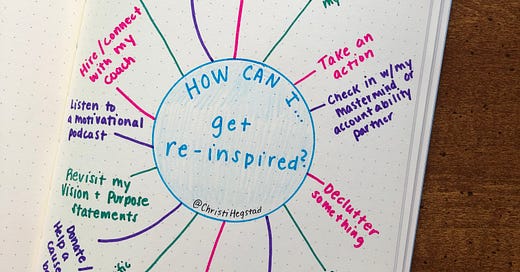 my
Hire/Connect
with my
coach
Take an
action
HOW CAN I...
Check in w/my
mastermind or
accountability
partner
Listen to
a motivational
podcast
get
re-inspired?
Revisit my
Vision + Purpose
Statements
@ChristiHegstad
Declutter
something
Donate/
Help a
cause